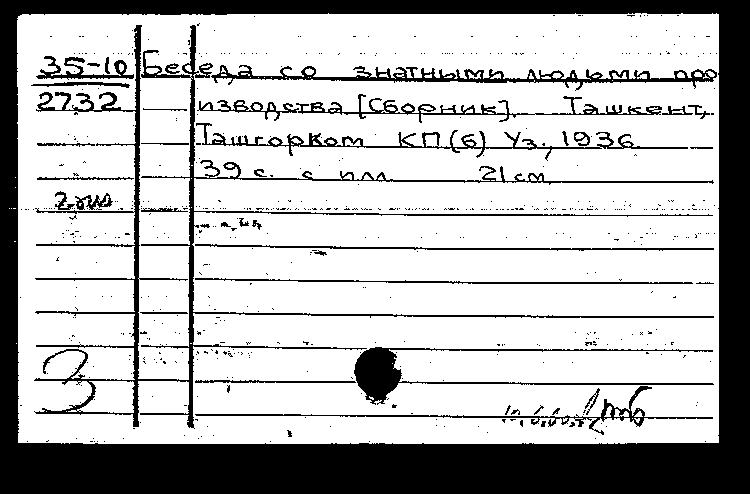 35-10 Беседа со знатными людьми про
2732 изводства [Сборник]. Ташкент,
Ташгорком КП(б) Уз., 1936.
39 с. с илл. 21 см.
2 rus
3